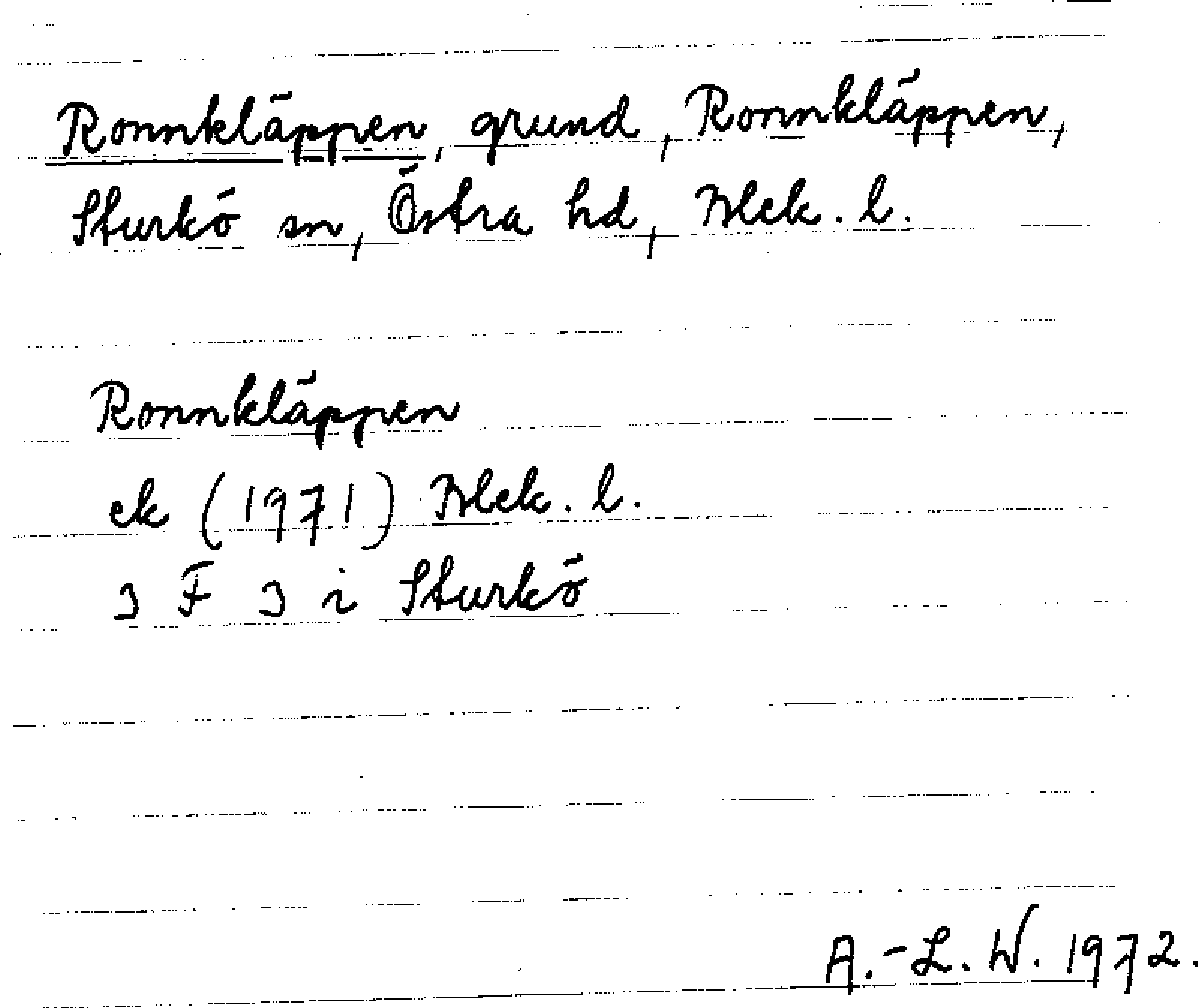 Ronnkläppen, grund, Ronnkläppen,
Sturkö sn, Östra hd, Blek. l.
Ronnkläppen
ek (1971) Blek. l.
3 F 3 i Sturkö
A.-L. W. 1972.